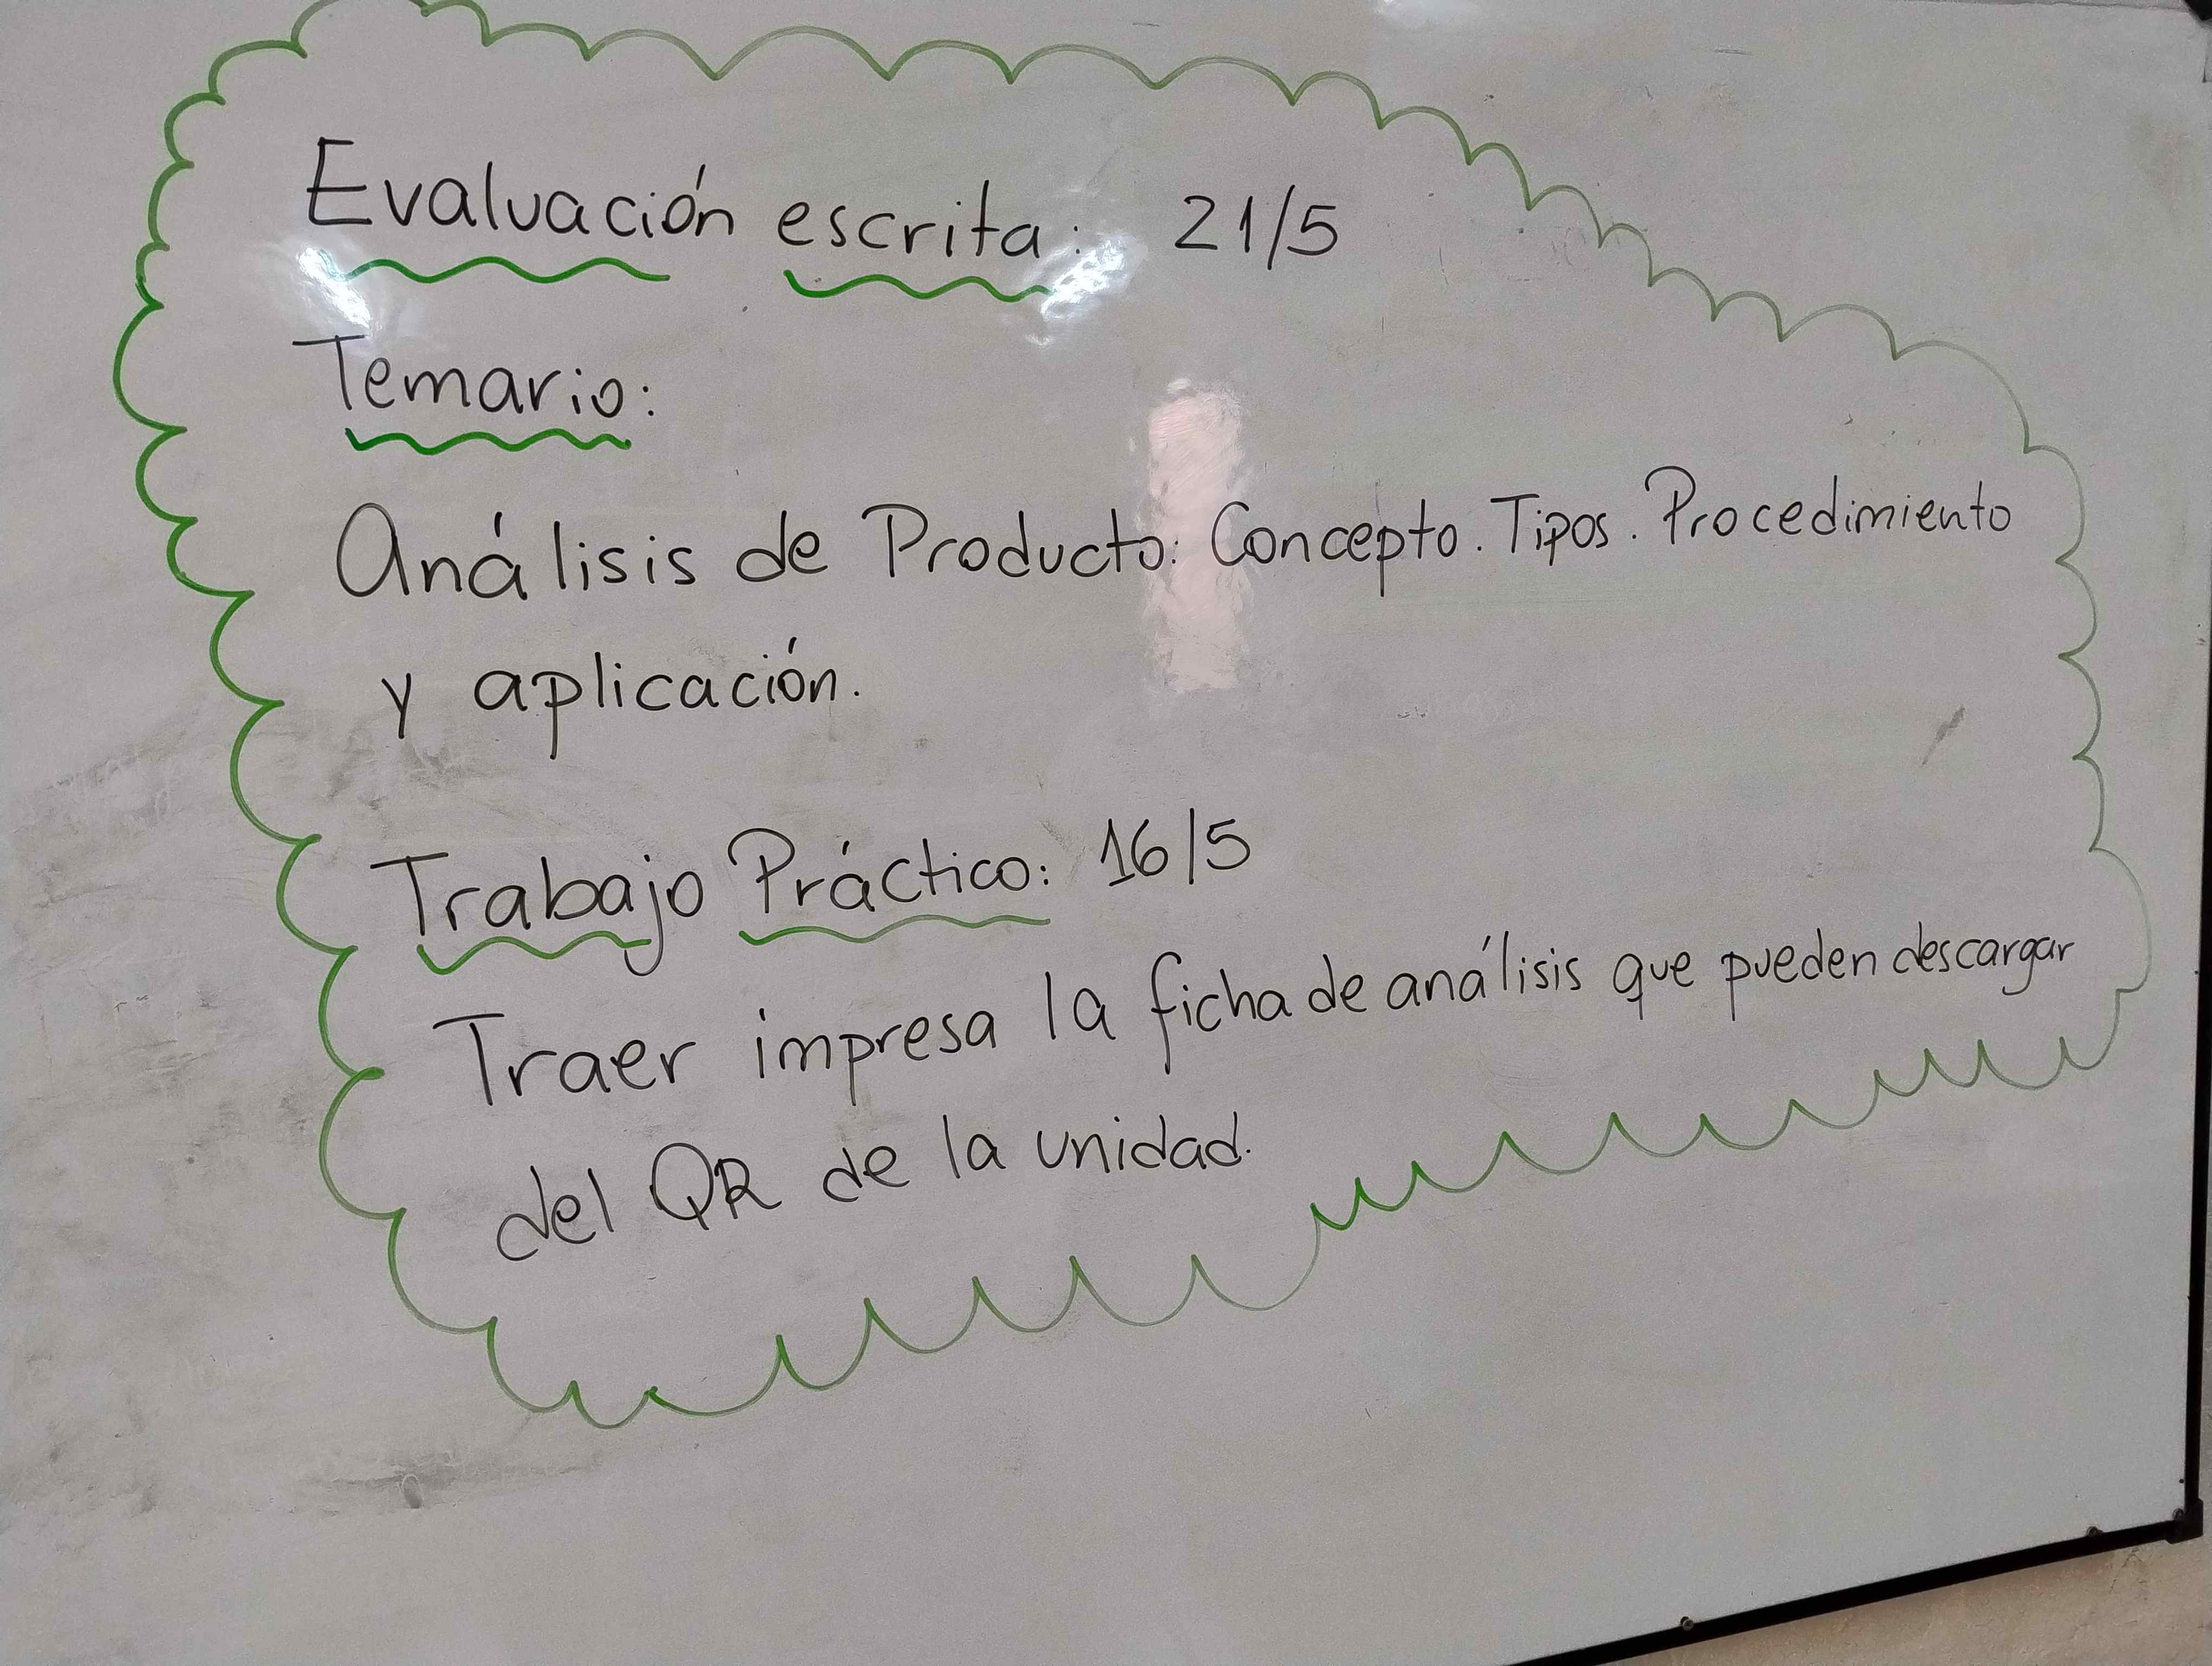 Evaluación escrita: 21/5
Temario:
Análisis de Producto: Concepto. Tipos. Procedimiento
y aplicación.
Trabajo Práctico: 16/5
Traer impresa la ficha de análisis que pueden descargar
del QR de la unidad.